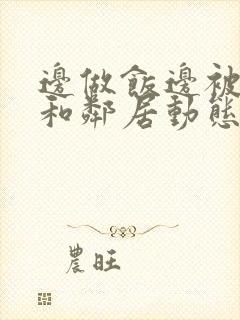 邊做飯邊被
和鄰居動態
農旺